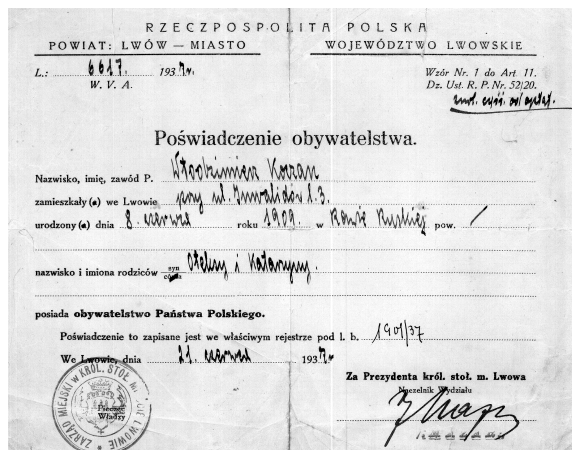 RZECZPOSPOLITA POLSKA
POWIAT: LWÓW — MIASTO
WOJEWÓDZTWO LWOWSKIE
L.: 6617. 1937r.
W. V. A.
Wzór Nr. 1 do Art. 11.
Dz. Ust. R. P. Nr. 52/20.
Poświadczenie obywatelstwa.
Nazwisko, imię, zawód P. Włodzimierz Kozan
zamieszkały(a) we Lwowie przy ul. Inwalidów l. 3.
urodzony(a) dnia 8. czerwca roku 1909. w Rawie Ruskiej pow. /
nazwisko i imiona rodziców syn córka Oleksy i Katarzyny.
posiada obywatelstwo Państwa Polskiego.
Poświadczenie to zapisane jest we właściwym rejestrze pod l. b. 1901/37
We Lwowie, dnia 21. czerwca 1937r.
Za Prezydenta król. stoł. m. Lwowa
Naczelnik Wydziału
Pieczęć
Władzy
ZARZĄD MIEJSKI W KRÓL. STOŁ. M. LWOWIE